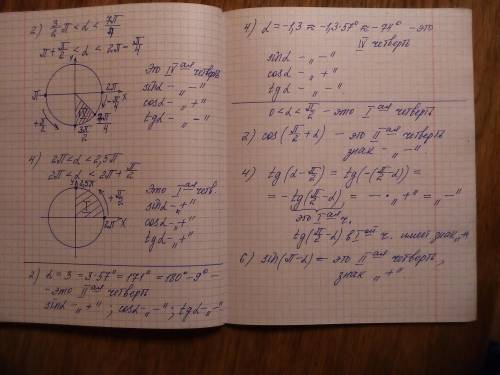 2) 3/2 π < α < 7π/4
π + π/2 < α < 2π - π/4
y
π
2π
X
-π/4
7π/4
3π/2
+π/2
IV
это IVая четверть
sinα - „-“
cosα - „+“
tgα - „-“
4) 2π < α < 2,5π
2π < α < 2π + π/2
y
2,5π
+π/2
I
2π
X
Это Iая четв.
sinα - „+“
cosα - „+“
tgα - „+“
2) α = 3 = 3·57° = 171° = 180° - 9° -
- это IIая четверть
sinα - „+“ ; cosα - „-“ ; tgα - „-“
4) α = -1,3 ≈ -1,3·57° ≈ -74° - это
IV четверть
sinα - „-“
cosα - „+“
tgα - „-“
0 < α < π/2 - это Iая четверть
2) cos(π/2 + α) - это IIая четверть
знак - „-“
4) tg(α - π/2) = tg(-(π/2 - α)) =
= -tg(π/2 - α) = - · „+“ = „-“
это Iая ч.
tg(π/2 - α) в Iой ч. имеет знак „+“
6) sin(π - α) - это IIая четверть,
знак „+“